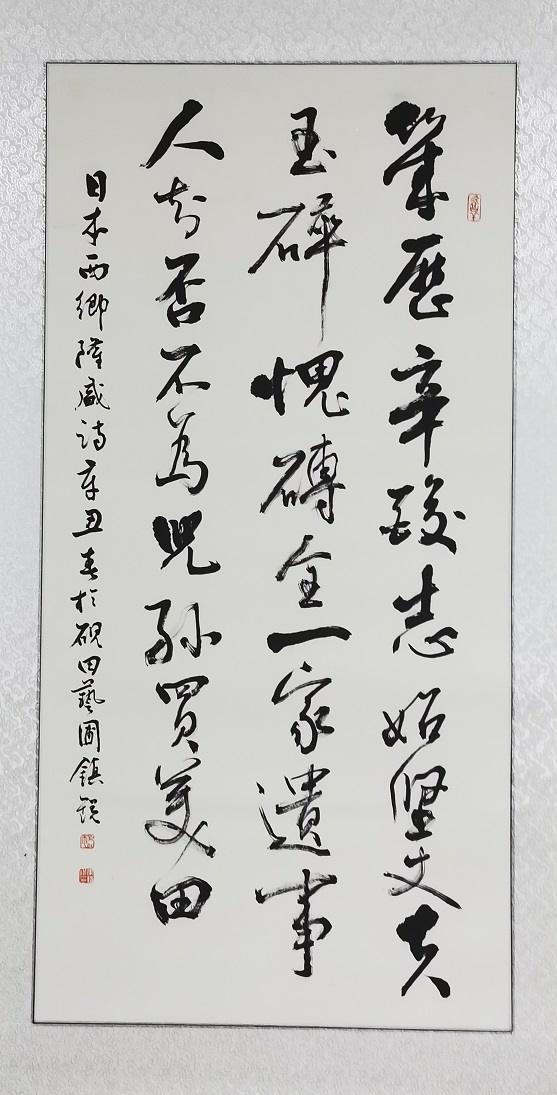 幾歷辛酸志始堅丈夫
玉碎愧磚全一家遺事
人知否不為兒孫買美田
日本西鄉隆盛詩辛丑春於硯田藝圃鎮